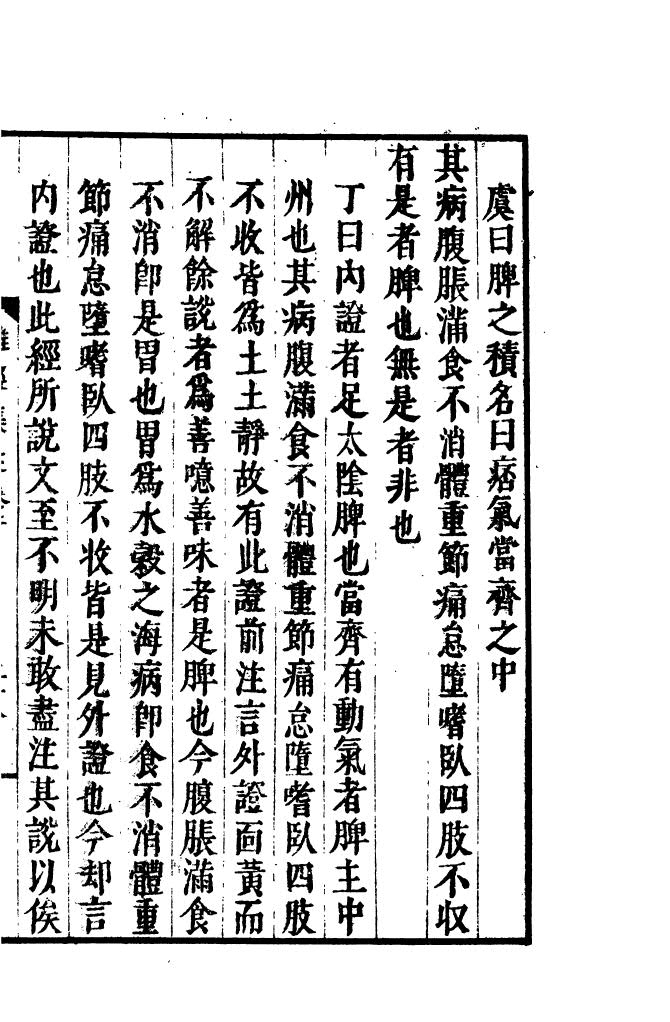 虞曰脾之積名曰痞氣當齊之中
其病腹脹滿食不消體重節痛怠墮嗜臥四肢不収
有是者脾也無是者非也
丁曰內證者足太陰脾也當齊有動氣者脾主中
州也其病腹滿食不消體重節痛怠墮嗜臥四肢
不收皆爲土土靜故有此證前注言外證面黃而
不解餘說者爲善噫善味者是脾也今腹脹滿食
不消卽是胃也胃爲水穀之海病卽食不消體重
節痛怠墮嗜臥四肢不收皆是見外證也今却言
內證也此經所說文至不明未敢盡注其說以俟